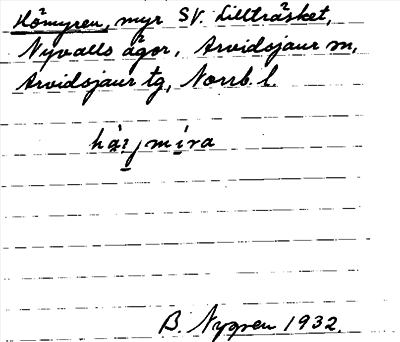 Hömyren, myr SV. Lillträsket,
Nyvalls ägor, Arvidsjaur sn,
Arvidsjaur tg, Norrb. l.
B. Nygren 1932.